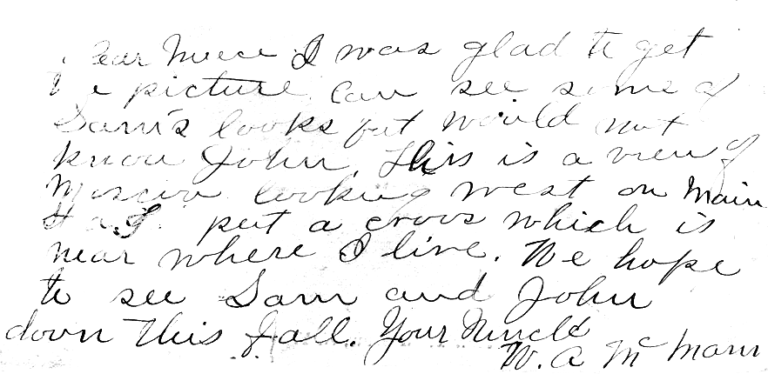 Dear Niece I was glad to get
the picture can see some of
Sam's looks but would not
know John. This is a view of
Moscow looking west on Main
St. put a cross which is
near where I live. We hope
to see Sam and John
down this fall. Your Uncle
W. A. McMann